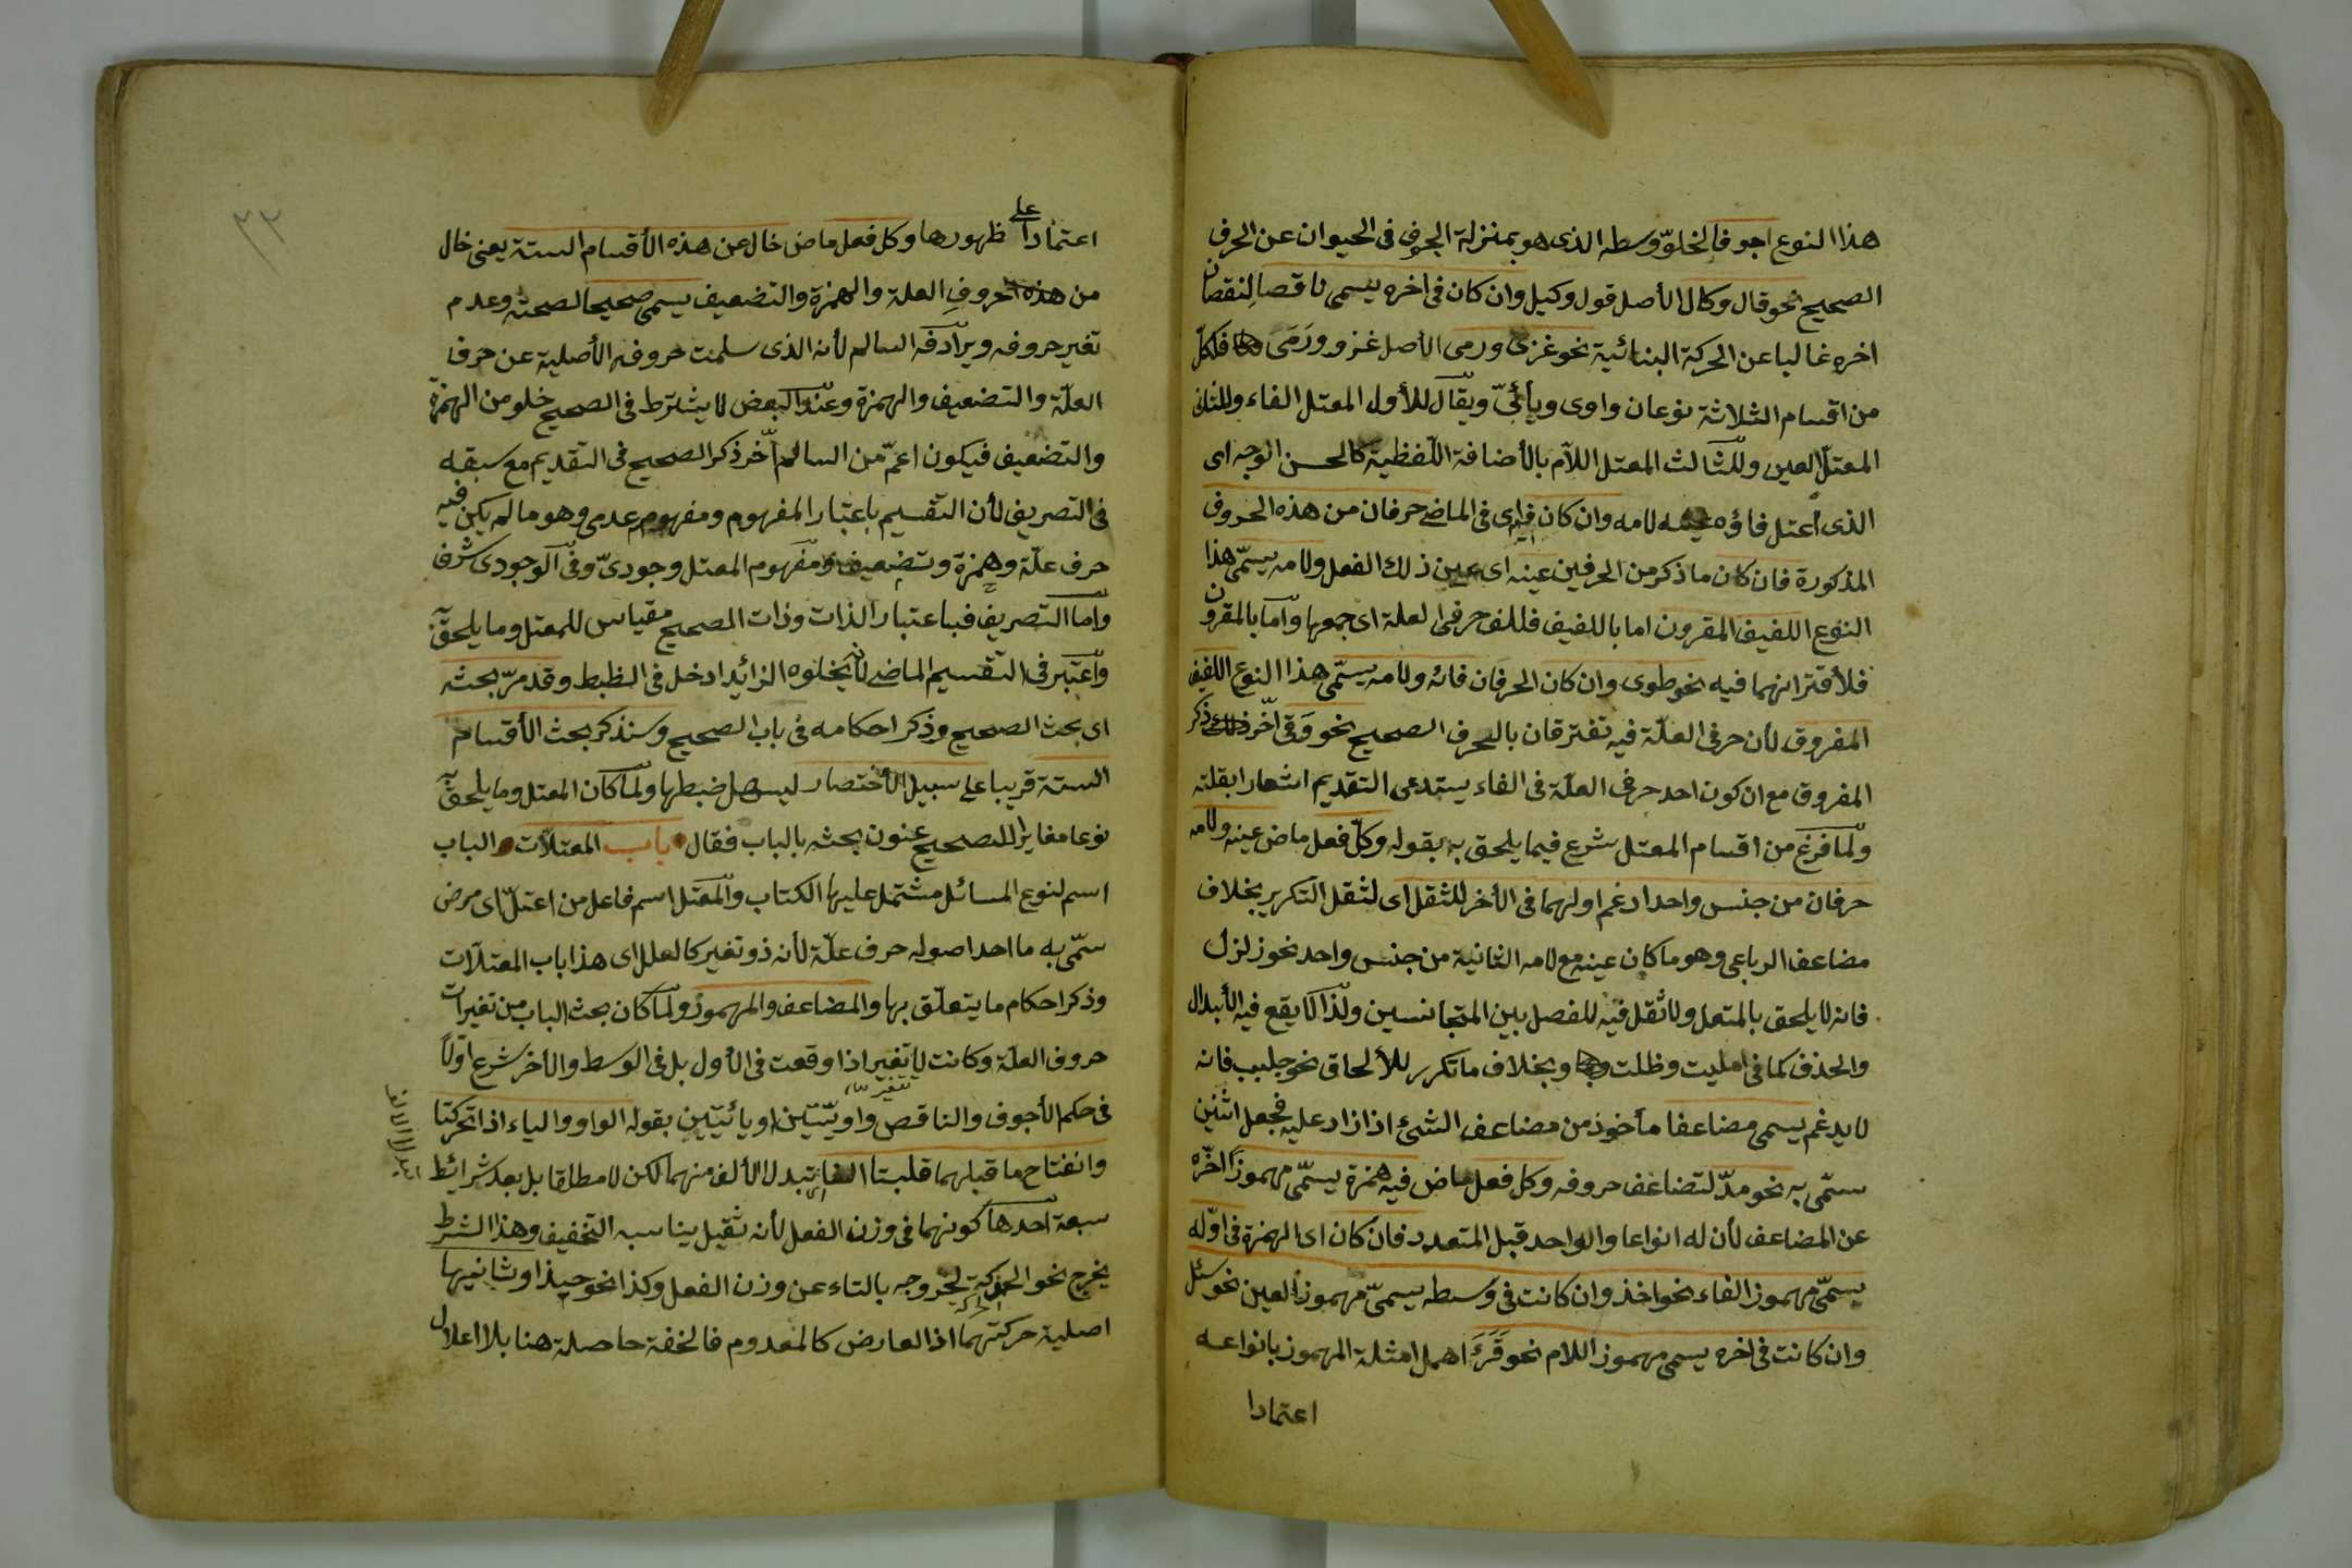 هذا النوع اجوفا لخلوّ وسطه الذى هو بمنزلة الجوف فى الحيوان عن الحرف
الصحيح نحو قال وكال الأصل قول وكيل وان كان فى اخره يسمى ناقصا لنقصان
اخره غالبا عن الحركة البنائية نحو غزى ورمى الأصل غزو ورَمَىَ فلكلّ
من اقسام الثلاثة نوعان واوى ويأئىّ ويقال للأول المعتل الفاء وللثانى
المعتلّ العين وللثالث المعتل اللاّم بالأضافة اللّفظية كالحسن الوجه اى
الذى اُعتل فاؤه عينه لامه وان كان فيه اى فى الماضى حرفان من هذه الحروف
المذكورة فان كان ما ذكر من الحرفين عينه اى عين ذلك الفعل ولامه يسمّى هذا
النوع اللفيف المقرون اما باللفيف فللف حرفى العلة اى جمعها وامّا بالمقرون
فلأقترانهما فيه نحو طوى وان كان الحرفان فائه ولامه يسمّى هذا النوع اللفيف
المفروق لأن حرفى العلّة فيه تفترقان بالحرف الصحيح نحو وَقى اخّر ذكر
المفروق مع ان كون احد حرفى العلّة فى الفاء يستدعى التقديم اشعارا بقلته
ولمّا فرغ من اقسام المعتل شرع فيما يلحق به بقوله وكلّ فعل ماض عينه ولامه
حرفان من جنس واحد ادغم اولهما فى الأخر للثقل اى لثقل التكرير بخلاف
مضاعف الرباعى وهو ما كان عينه مع لامه الثانية من جنس واحد نحو زلزل
فانه لا يلحق بالمتعل ولا ثقل فيه للفصل بين المتجانسين ولذا لا يقع فيه الأبدال
والحذف كما فى امليت وظلت وبخلاف ما تكرر للألحاق نحو جلبب فانه
لا يدغم يسمى مضاعفا مأخوذ من مضاعف الشئ اذا زاد عليه فجعل اثنين
سمّى به نحو مدّ لتضاعف حروفه وكل فعل ماض فيه همزة يسمّى مهموزا اخّره
عن المضاعف لأن له انواعا والواحد قبل المتعدد فان كان اى الهمزة فى اوّله
يسمّى مهموز الفاء نحو اخذ وان كانت فى وسطه يسمىّ مهموز العين نحو سئل
وان كانت فى اخره يسمى مهموز اللام نحو قَرَءَ اهمل امثلة المهموز بانواعه
اعتمادا
٣٣
اعتمادا على ظهورها وكل فعل ماض خال عن هذه الأقسام الستة يعنى خال
من حروف العلة والهمزة والتضعيف يسمى صحيحا لصحته وعدم
تغير حروفه ويرادفه السالم لأنه الذى سلمت حروفه الأصلية عن حرف
العلّة والتضعيف والهمزة وعند البعض لا يشترط فى الصحيح خلو من الهمزة
والتضعيف فيكون اعمّ من السالم اخّر ذكر الصحيح فى التقديم مع سبقه
فى التصريف لأن التقسيم باعتبار المفهوم ومفهومه عدمى وهو ما لم يكن فيه
حرف علّة وهمزة وتضعيف ومفهوم المعتل وجودىّ وفى الوجودى شرف
وامّا التصريف فباعتبار الذات وذات الصحيح مقياس للمعتل وما يلحق به
واعتبر فى التقسيم الماضى لأن يخلوه الزائد ادخل فى الظبط وقد مرّ بحثه
اى بحث الصحيح وذكر احكامه فى باب الصحيح وسنذكر بحث الأقسام
الستة قريبا على سبيل الأختصار ليسهل ضبطها ولمّا كان المعتل وما يلحق به
نوعا مغايرا للصحيح عنون بحثه بالباب فقال باب المعتلاّت والباب
اسم لنوع المسائل مشتمل عليها الكتاب والمعتل اسم فاعل من اعتلّ اى مرض
سمّى به ما احد اصوله حرف علّة لأنه ذو تغير كالعلل اى هذا باب المعتلاّت
وذكر احكام ما يتعلّق بها والمضاعف والمهموز ولمّا كان بحث الباب من تغيرات
حروف العلّة وكانت لا يتغير اذا وقعت فى الأول بل فى الوسط والأخر شرع اوّلاً
فى حكم الأجوف والناقص واويّتين او يائيتين بقوله الواو والياء اذا تحركتا
وانفتاح ما قبلهما قلبتا الفا اى تبدل الألف منهما لكن لا مطلقا بل بعد شرائط
سبعة احدها كونهما فى وزن الفعل لأنه ثقيل يناسبه التخفيف وهذا الشرط
يخرج نحو الحوكة لخروجه بالتاء عن وزن الفعل وكذا نحو حيذا وثانيها
اصلية حركتهما اذ العارض كالمعدوم فالخفة حاصلة هنا بلا اعلال